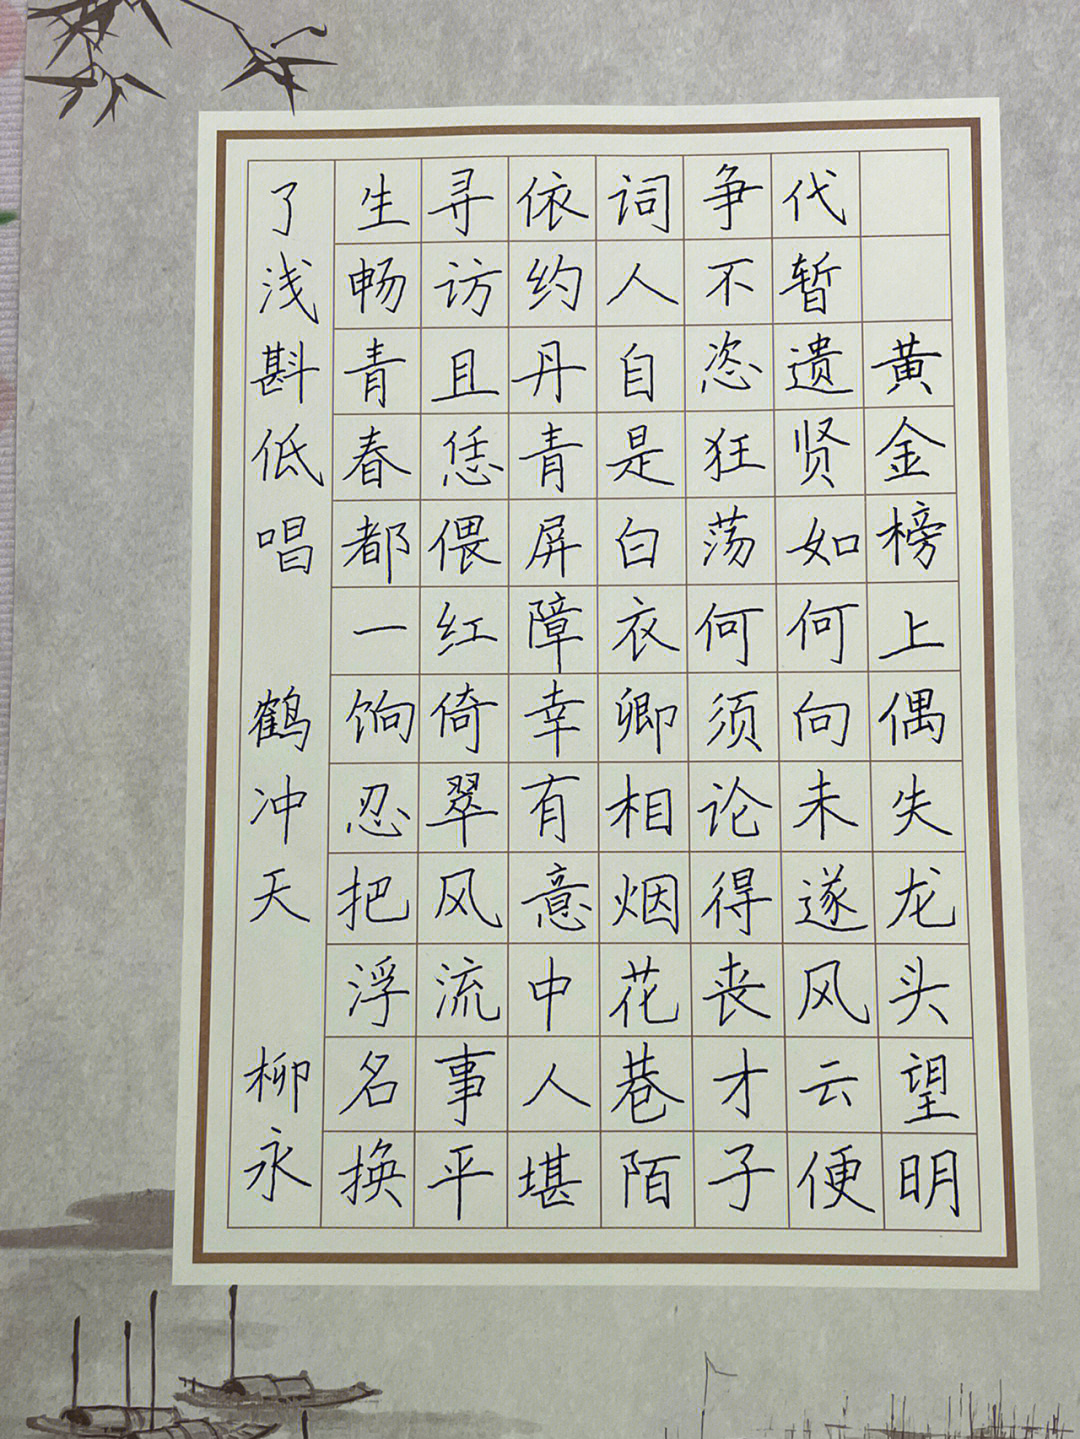 黄金榜上偶失龙头望明
代暂遗贤如何向未遂风云便
争不恣狂荡何须论得丧才子
词人自是白衣卿相烟花巷陌
依约丹青屏障幸有意中人堪
寻访且恁偎红倚翠风流事平
生畅青春都一饷忍把浮名换
了浅斟低唱 鹤冲天 柳永